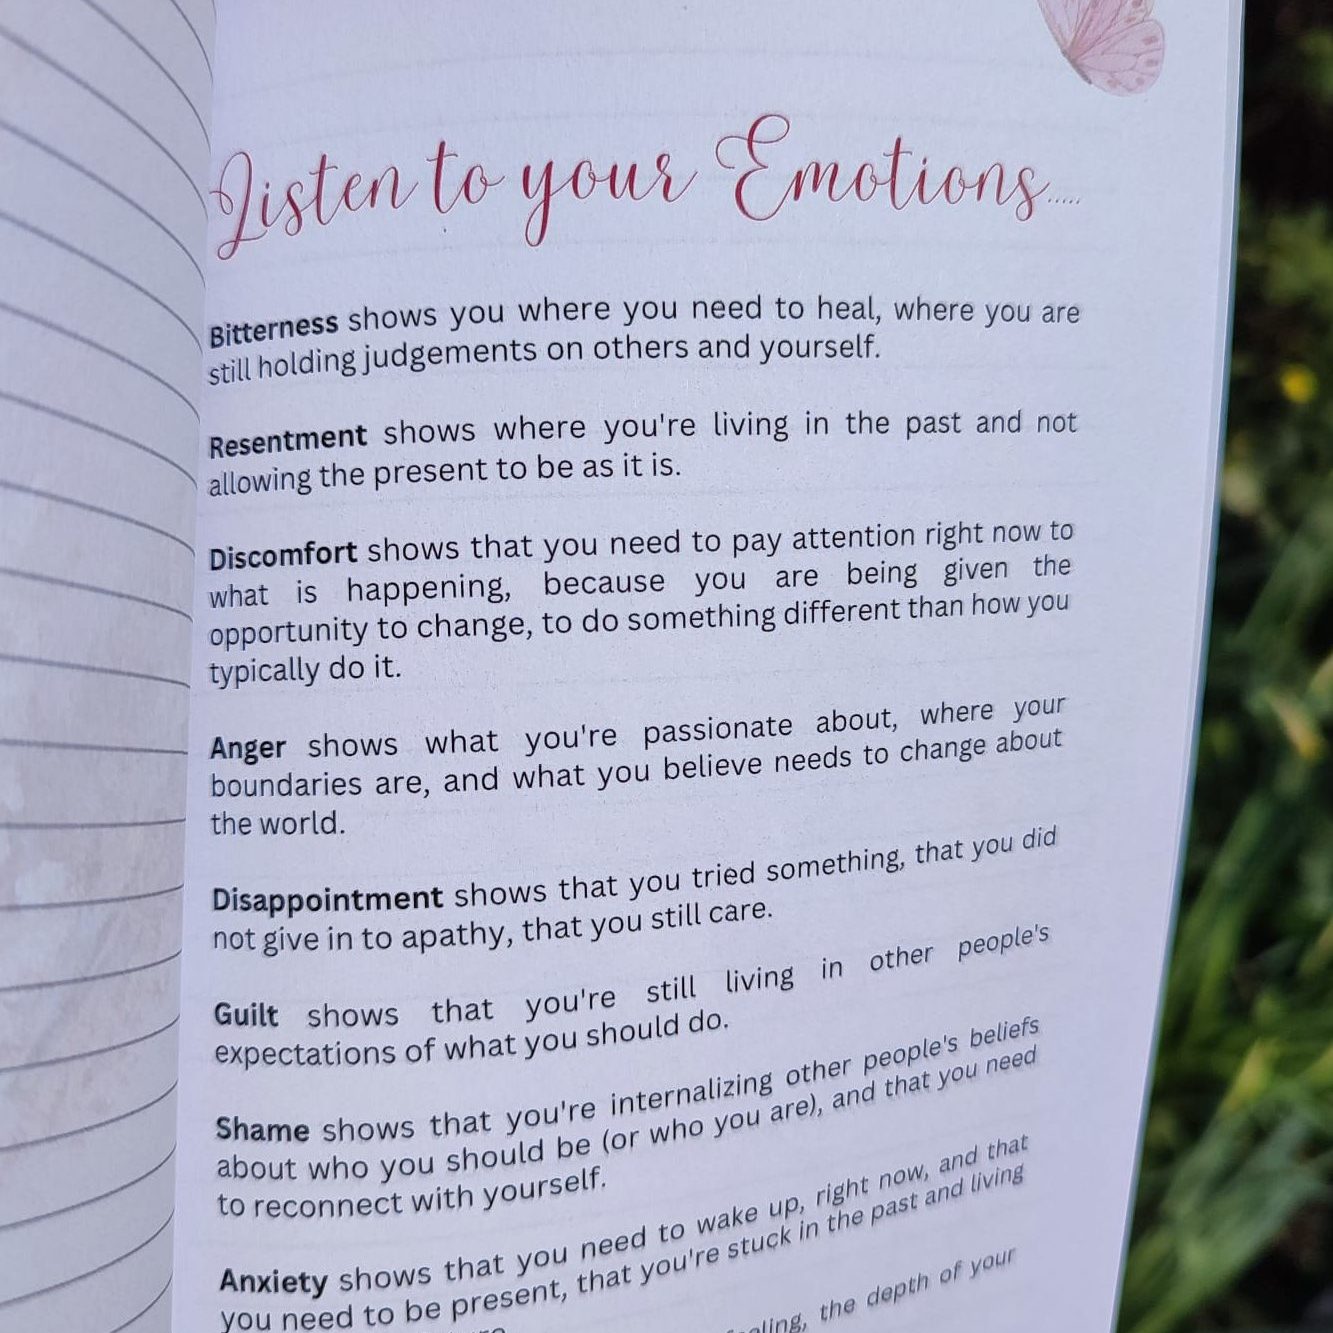 Listen to your Emotions.....
Bitterness shows you where you need to heal, where you are
still holding judgements on others and yourself.
Resentment shows where you're living in the past and not
allowing the present to be as it is.
Discomfort shows that you need to pay attention right now to
what is happening, because you are being given the
opportunity to change, to do something different than how you
typically do it.
Anger shows what you're passionate about, where your
boundaries are, and what you believe needs to change about
the world.
Disappointment shows that you tried something, that you did
not give in to apathy, that you still care.
Guilt shows that you're still living in other people's
expectations of what you should do.
Shame shows that you're internalizing other people's beliefs
about who you should be (or who you are), and that you need
to reconnect with yourself.
Anxiety shows that you need to wake up, right now, and that
you need to be present, that you're stuck in the past and living
the depth of your